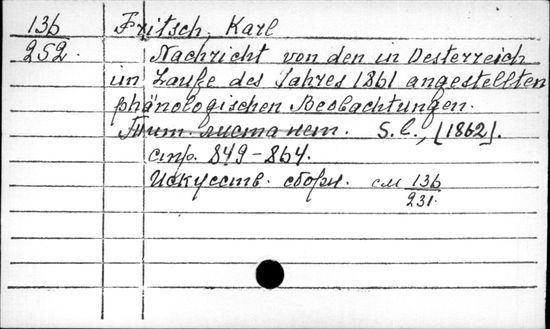 136 Fritsch, Karl
252. Nachricht von den in Oesterreich
im Laufe des Jahres 1861 angestellten
phänologischen Beobachtungen.
Тит. листа нет. S. l., [1862].
стр. 849-864.
Искусств. сборн. см 136
231.